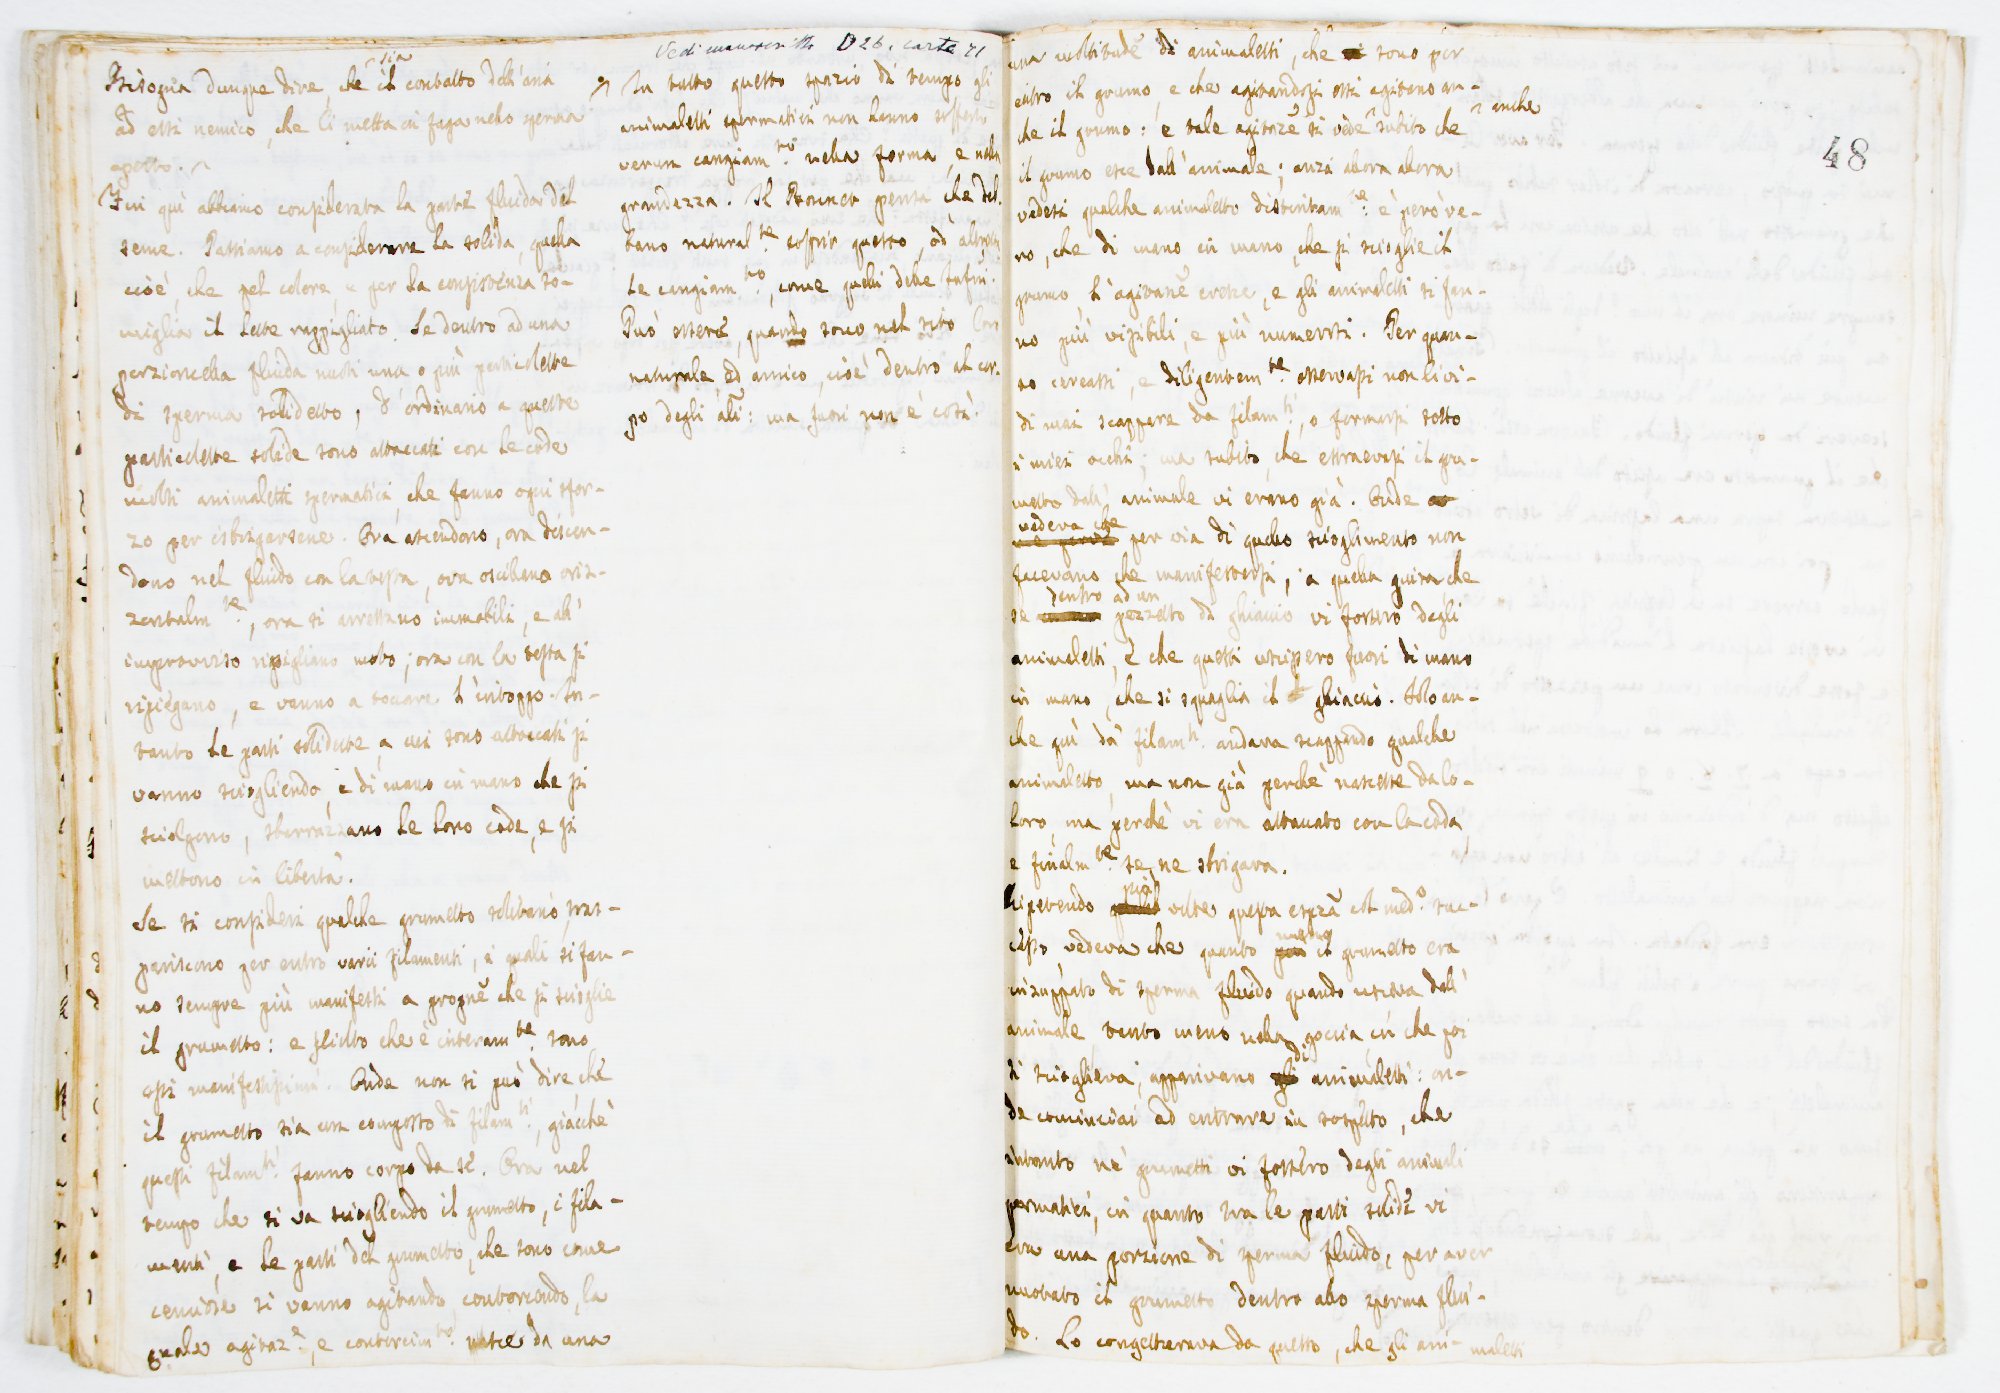 Vedi manoscritto D 26. carte 71
sia
Bisogna dunque dire, che il contatto dell'aria
ad essi nemico, che li metta in fuga nello sperma
aperto.
Fin quì abbiamo considerata la parte fluida del
seme. Passiamo a considerare la solida, quella
cioè, che pel colore, e per la consistenza so-
miglia il latte rappigliato. Se dentro ad una
porzioncella fluida nuoti una o più particolette
di sperma solidetto, d'ordinario a queste
particolette solide sono attaccati con le code
molti animaletti spermatici, che fanno ogni sfor-
zo per isbrigarsene. Ora ascendono, ora discen-
dono nel fluido con la testa, ora oscillano oriz-
zontalm.te, ora si arrestano immobili, e all'
improvviso ripigliano moto; ora con la testa si
ripiegano, e vanno a toccare l'intoppo. In-
tanto le parti solidette, a cui sono attaccati si
vanno sciogliendo, e di mano in mano che si
sciolgono, sbarrazzano le loro code, e si
mettono in libertà.
Se si consideri qualche grumetto solitario, tras-
pariscono per entro varii filamenti, i quali si fan-
no sempre più manifesti a propnē che si scioglie
il grumetto: e sciolto che è interam.te sono
essi manifestissimi. Onde non si può dire che
il grumetto sia un composto di filam.ti, giacchè
questi filam.ti fanno corpo da sè. Ora nel
tempo che si va sciogliendo il grumetto, i fila-
menti, e le parti del grumetto, che sono come
cenciose si vanno agitando, contorcendo, la
quale agitaz.e, e contorcim.to nasce da una
In tutto questo spazio di tempo gli
animaletti spermatici non hanno sofferto
verun cangiam.to nella forma, e nella
grandezza. Il Bonnet pensa, che deb-
bano natural.te soffrir questo, od altro si-
le cangiam.to, come quelli delle infus.
Può essere, quando sono nel sito loro
naturale ed amico, cioè dentro al cor-
po degli ali: ma fuori non è così.
48
una moltitudē di animaletti, che sono per
entro il grumo, e che agitandosi essi agitano an-
che il grumo: e tale agitazē si vede subito che
anche
il grumo esce dall'animale; anzi allora allora
vedesi qualche animaletto distintam.te: è però ve-
ro, che di mano in mano, che si scioglie il
grumo l'agitanē cresce, e gli animaletti si fan-
no più visibili, e più numerosi. Per quan-
to cercassi, e diligentem.te osservassi non li vi-
di mai scappare da filam.ti, o formarsi sotto
i miei occhi; ma subito, che estraevasi il gru-
metto dall'animale vi erano già. Onde
vedeva che
per via di quello scioglimento non
facevano che manifestarsi, a quella guisa che
dentro ad un
se pezzetto di ghiaccio vi fossero degli
animaletti, e che questi uscissero fuori di mano
in mano, che si squaglia il ghiaccio. Solo an-
che quì da' filam.ti andava scappando qualche
animaletto, ma non già perchè nascesse da lo-
loro, ma perchè vi era attaccato con la coda,
e finalm.te se ne sbrigava.
più
Ripetendo volte questa esprzā col med.o suc-
cesso, vedeva che quanto il grumetto era
inzuppato di sperma fluido quando usciva dall'
animale tanto meno nella goccia in che poi
di
si scioglieva, apparivano animaletti: on-
de cominciai ad entrare in sospetto, che
intanto ne' grumetti vi fossero degli animali
spermatici, in quanto tra le parti solide vi
era una porzione di sperma fluido, per aver
nuotato il grumetto dentro allo sperma flui-
do. Lo congetturava da questo, che gli ani-
maletti